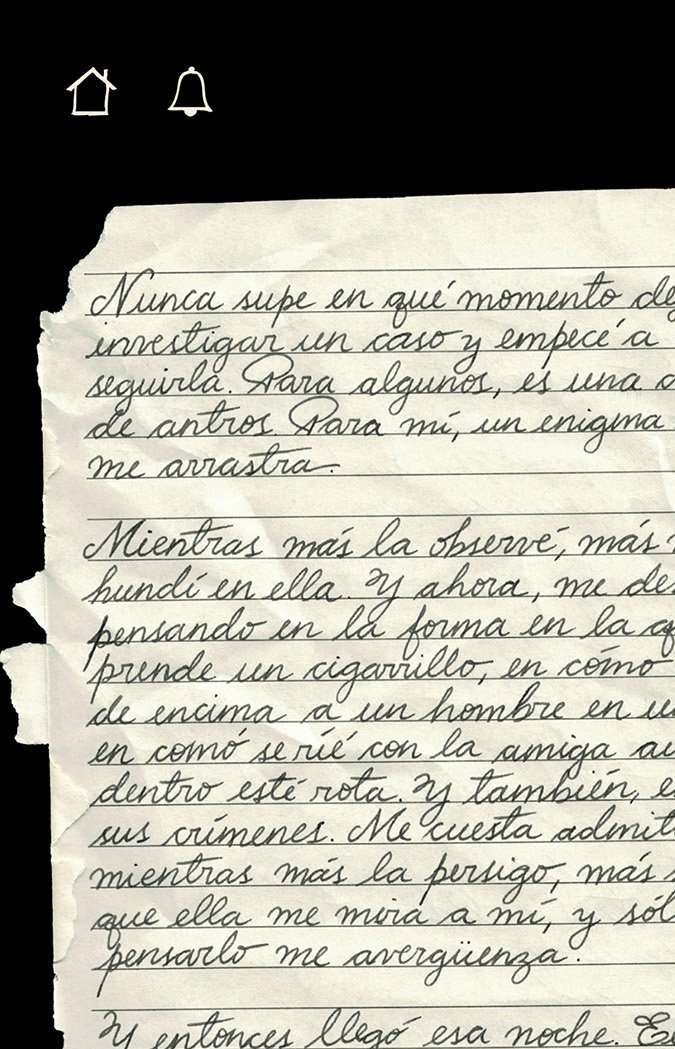 Nunca supe en qué momento de
investigar un caso y empecé a
seguirla. Para algunos, es una
de antros. Para mí, un enigma
me arrastra.
Mientras más la observé, más
hundí en ella. Y ahora, me de
pensando en la forma en la
prende un cigarrillo, en cómo
de encima a un hombre en u
en comó se ríe con la amiga au
dentro esté rota. Y también, e
sus crímenes. Me cuesta admit
mientras más la persigo, más
que ella me mira a mí, y sól
pensarlo me avergüenza.
Y entonces llegó esa noche. E